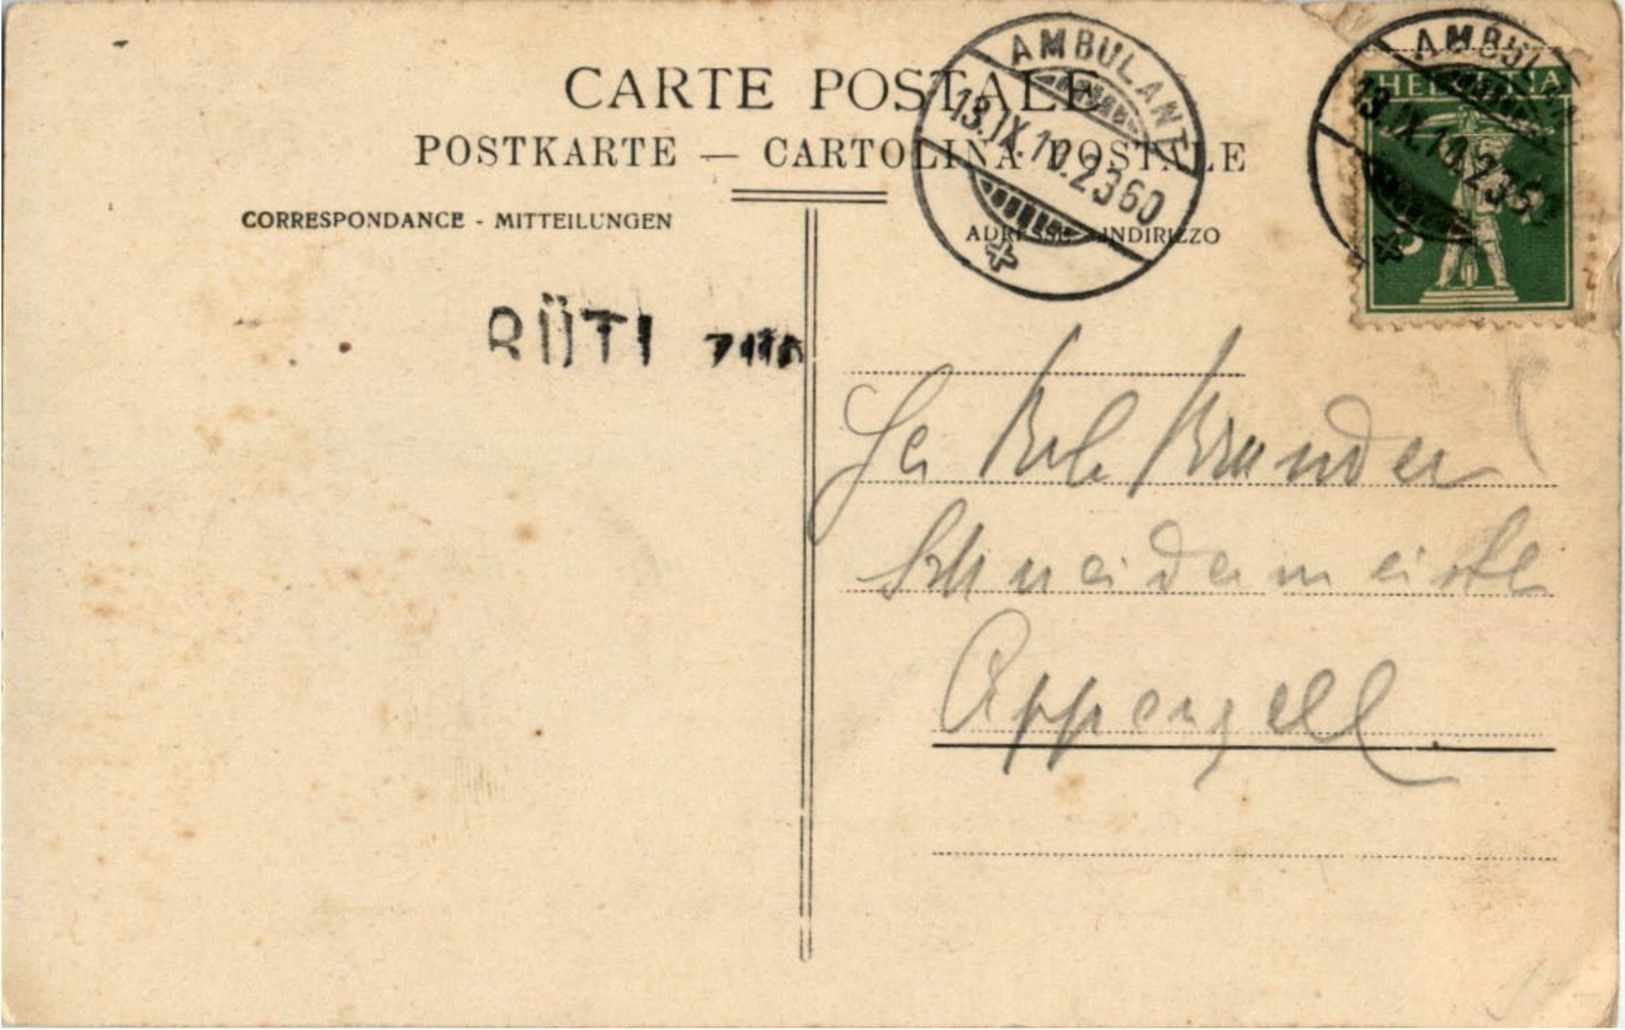 CARTE POSTALE
POSTKARTE — CARTOLINA POSTALE
CORRESPONDANCE - MITTEILUNGEN
ADRESSE - INDIRIZZO
AMBULANT
13.IX.10.2360
AMBULANT
13.IX.10.2360
HELVETIA
5
RÜTI
Schneidermeister
Appenzell